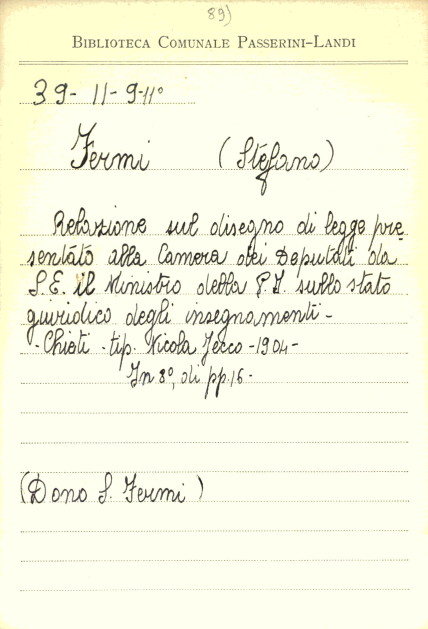 89)
BIBLIOTECA COMUNALE PASSERINI-LANDI
39- 11-9-11°
Fermi (Stefano)
Relazione sul disegno di legge pre
sentato alla Camera dei Deputati da
S.E. il Ministro della P.I. sullo stato
giuridico degli insegnamenti-
- Chieti - tip. Nicola Jecco -1904-
In 8°, di pp. 16-
(Dono S. Fermi)